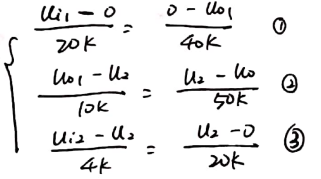 (Ui1 - 0)/20K = (0 - Uo1)/40K ①
(Uo1 - U2)/10K = (U2 - Uo)/50K ②
(Ui2 - U2)/4K = (U2 - 0)/20K ③